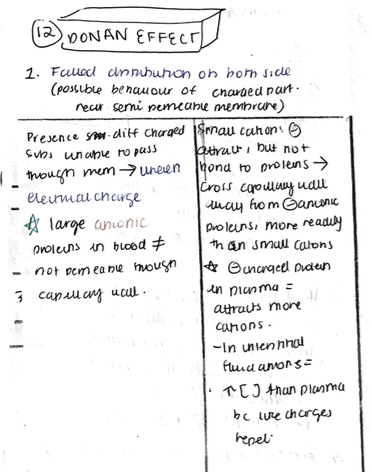 12 DONAN EFFECT
1. Failed distribution on both side
(possible behaviour of charged part.
near semi permeable membrane)
Presence diff charged
subs unable to pass
though mem → uneven
electrical charge
☆ large anionic
proteins in blood ≠
not permeable though
capillary wall.
Small cation: ⊖
attract, but not
bond to proteins →
cross capillary wall
away from ⊖ anionic
proteins, more readily
than small cations
☆ ⊖ charged protein
in plasma =
attracts more
cations.
- In interstitial
fluid anions =
↑ [ ] than plasma
bc like charges
repel.